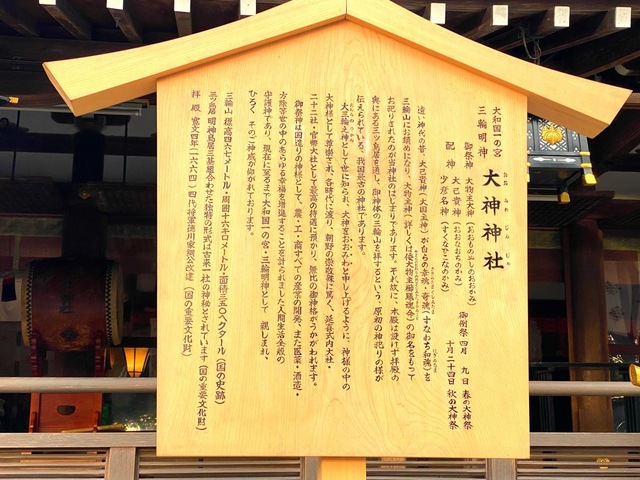 大和国一の宮
三輪明神 大神神社
おお みわ じん じゃ
御祭神 大物主大神（おおものぬしのおおかみ）
配神 大己貴神（おおなむちのかみ）
少彦名神（すくなひこなのかみ）
御例祭 四月 九日 春の大神祭
十月二十四日 秋の大神祭
遠い神代の昔、大己貴神（大国主神）が自らの幸魂・奇魂（すなわち和魂）を
三輪山にお鎮めになり、大物主神（詳しくは倭大物主櫛𤭖魂命）の御名をもって
お祀りされたのが当神社のはじまりであります。それ故に、本殿は設けず拝殿の
奥にある三ツ鳥居を通し、御神体の三輪山を拝するという、原初の神祀りの様が
伝えられている、我国最古の神社であります。
大三輪之神として世に知られ、大神をおおみわと申し上げるように、神様の中の
大神様として尊崇され、各時代に渡り、朝野の崇敬殊に篤く、延喜式内大社・
二十二社・官幣大社として最高の待遇に預かり、無比の御神格がうかがわれます。
御祭神は国造りの神様として、農・工・商すべての産業の開発、また医薬・酒造・
方除等世の中のあらゆる幸福を増進することを計られました人間生活全般の
守護神であり、現在に至るまで大和国一の宮・三輪明神として 親しまれ、
ひろく、そのご神威が仰がれております。
三輪山 標高四六七メートル・周囲十六キロメートル・面積三五〇ヘクタール（国の史跡）
三ツ鳥居 明神鳥居三基組合わせた独特の形式は古来一社の神秘とされています（国の重要文化財）
拝殿 寛文四年（一六六四）四代将軍徳川家綱公改建（国の重要文化財）